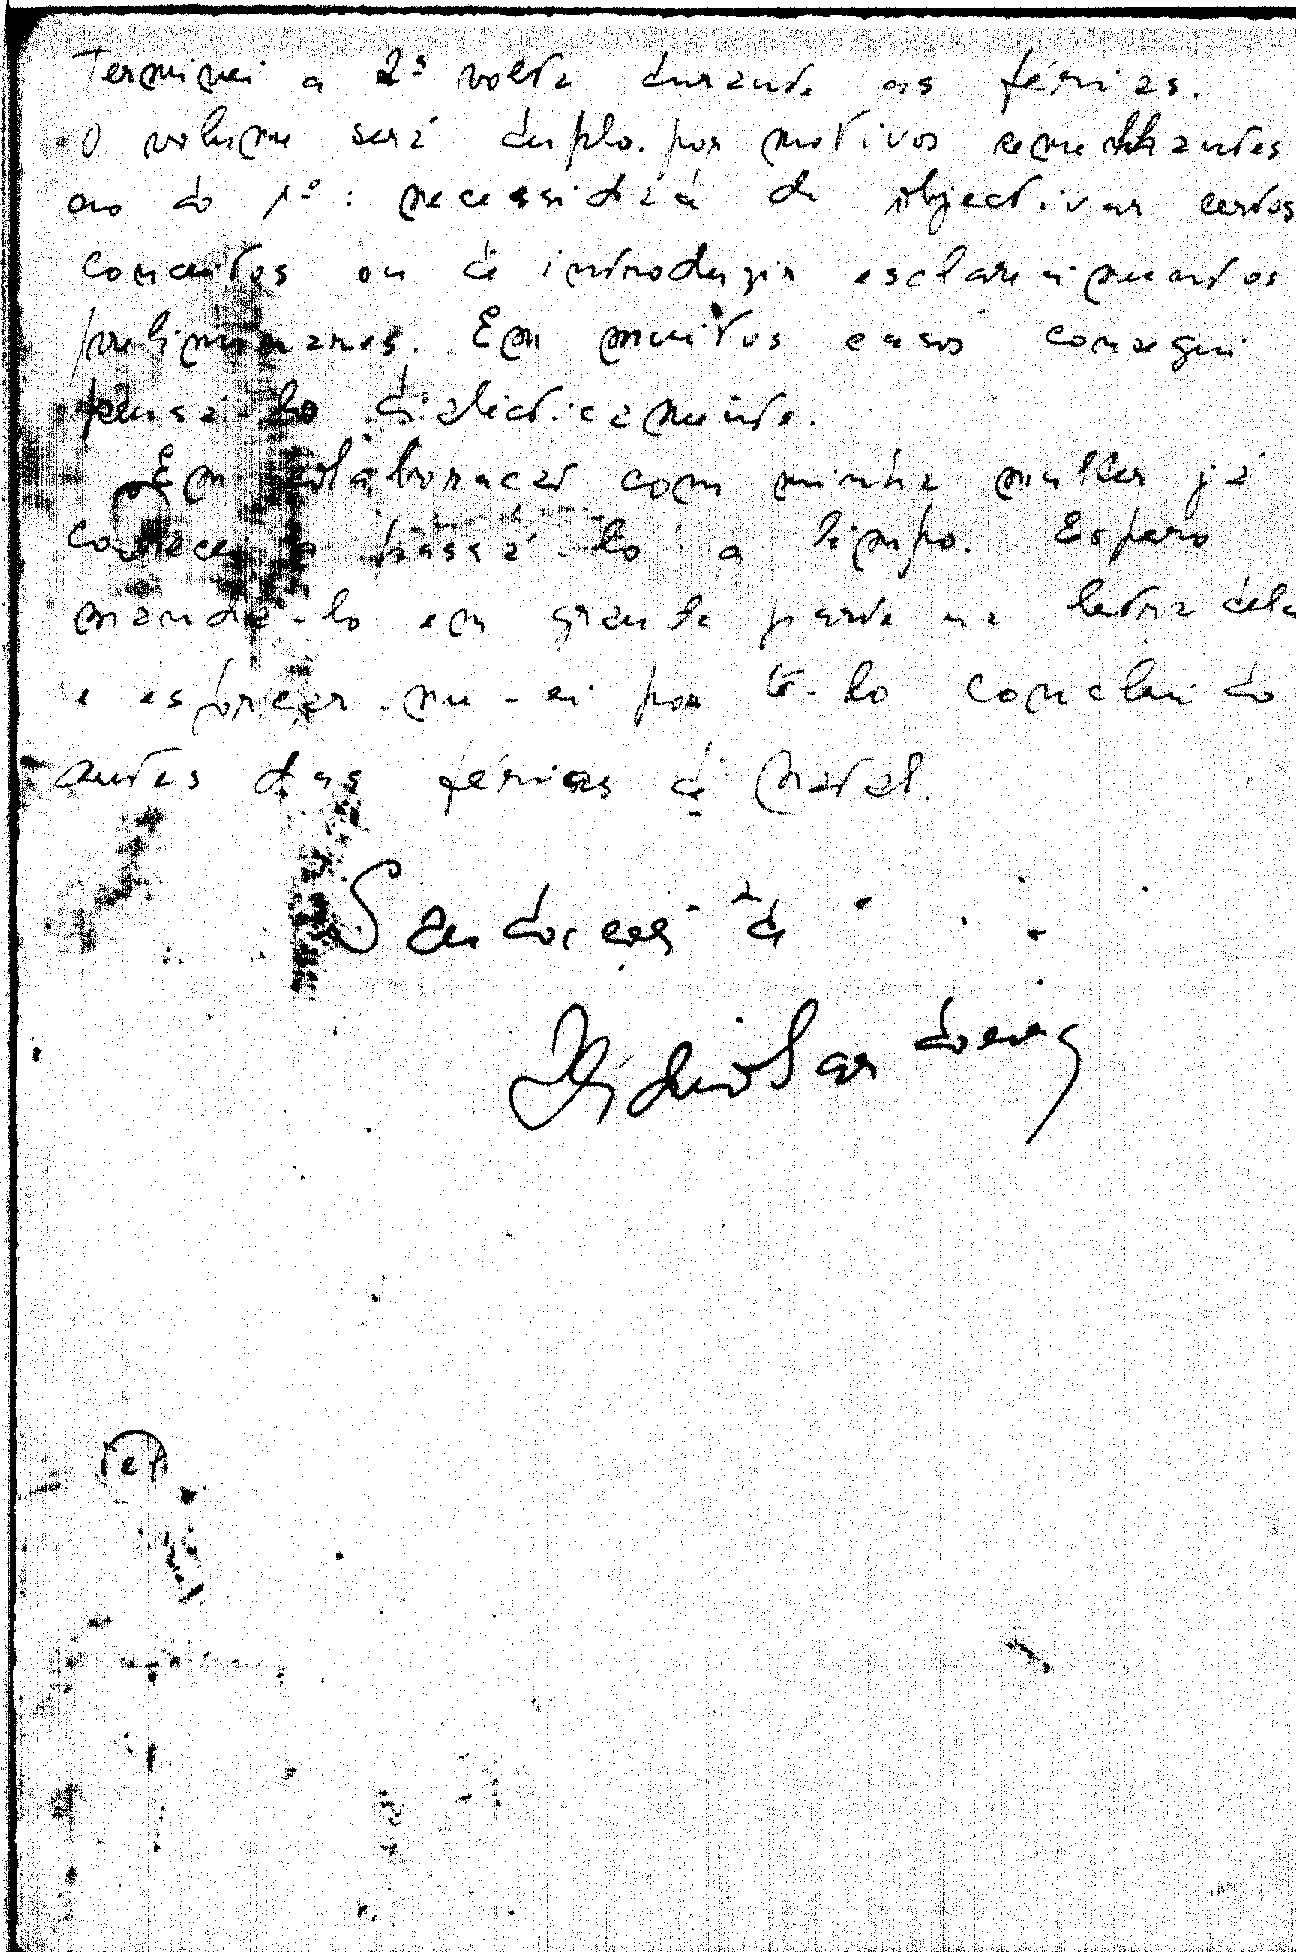 Terminei a 2ª volta durante as férias.
O volume será duplo por motivos semelhantes
ao do 1º: necessidade de objectivar certos
conceitos ou de introduzir esclarecimentos
preliminares. Em muitos casos consegui
pensá-lo dialecticamente.
Em colaboração com minha mulher já
comecei a passá-lo a limpo. Espero
mandá-lo em grande parte na letra dela
e esforçar-me-ei por tê-lo concluído
antes das férias de Natal.
Saudações de
Sardo